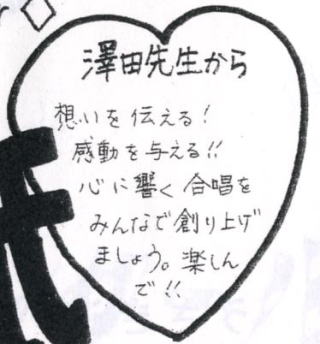 澤田先生から
想いを伝える!
感動を与える!!
心に響く合唱を
みんなで創り上げ
ましょう。楽しん
で!!